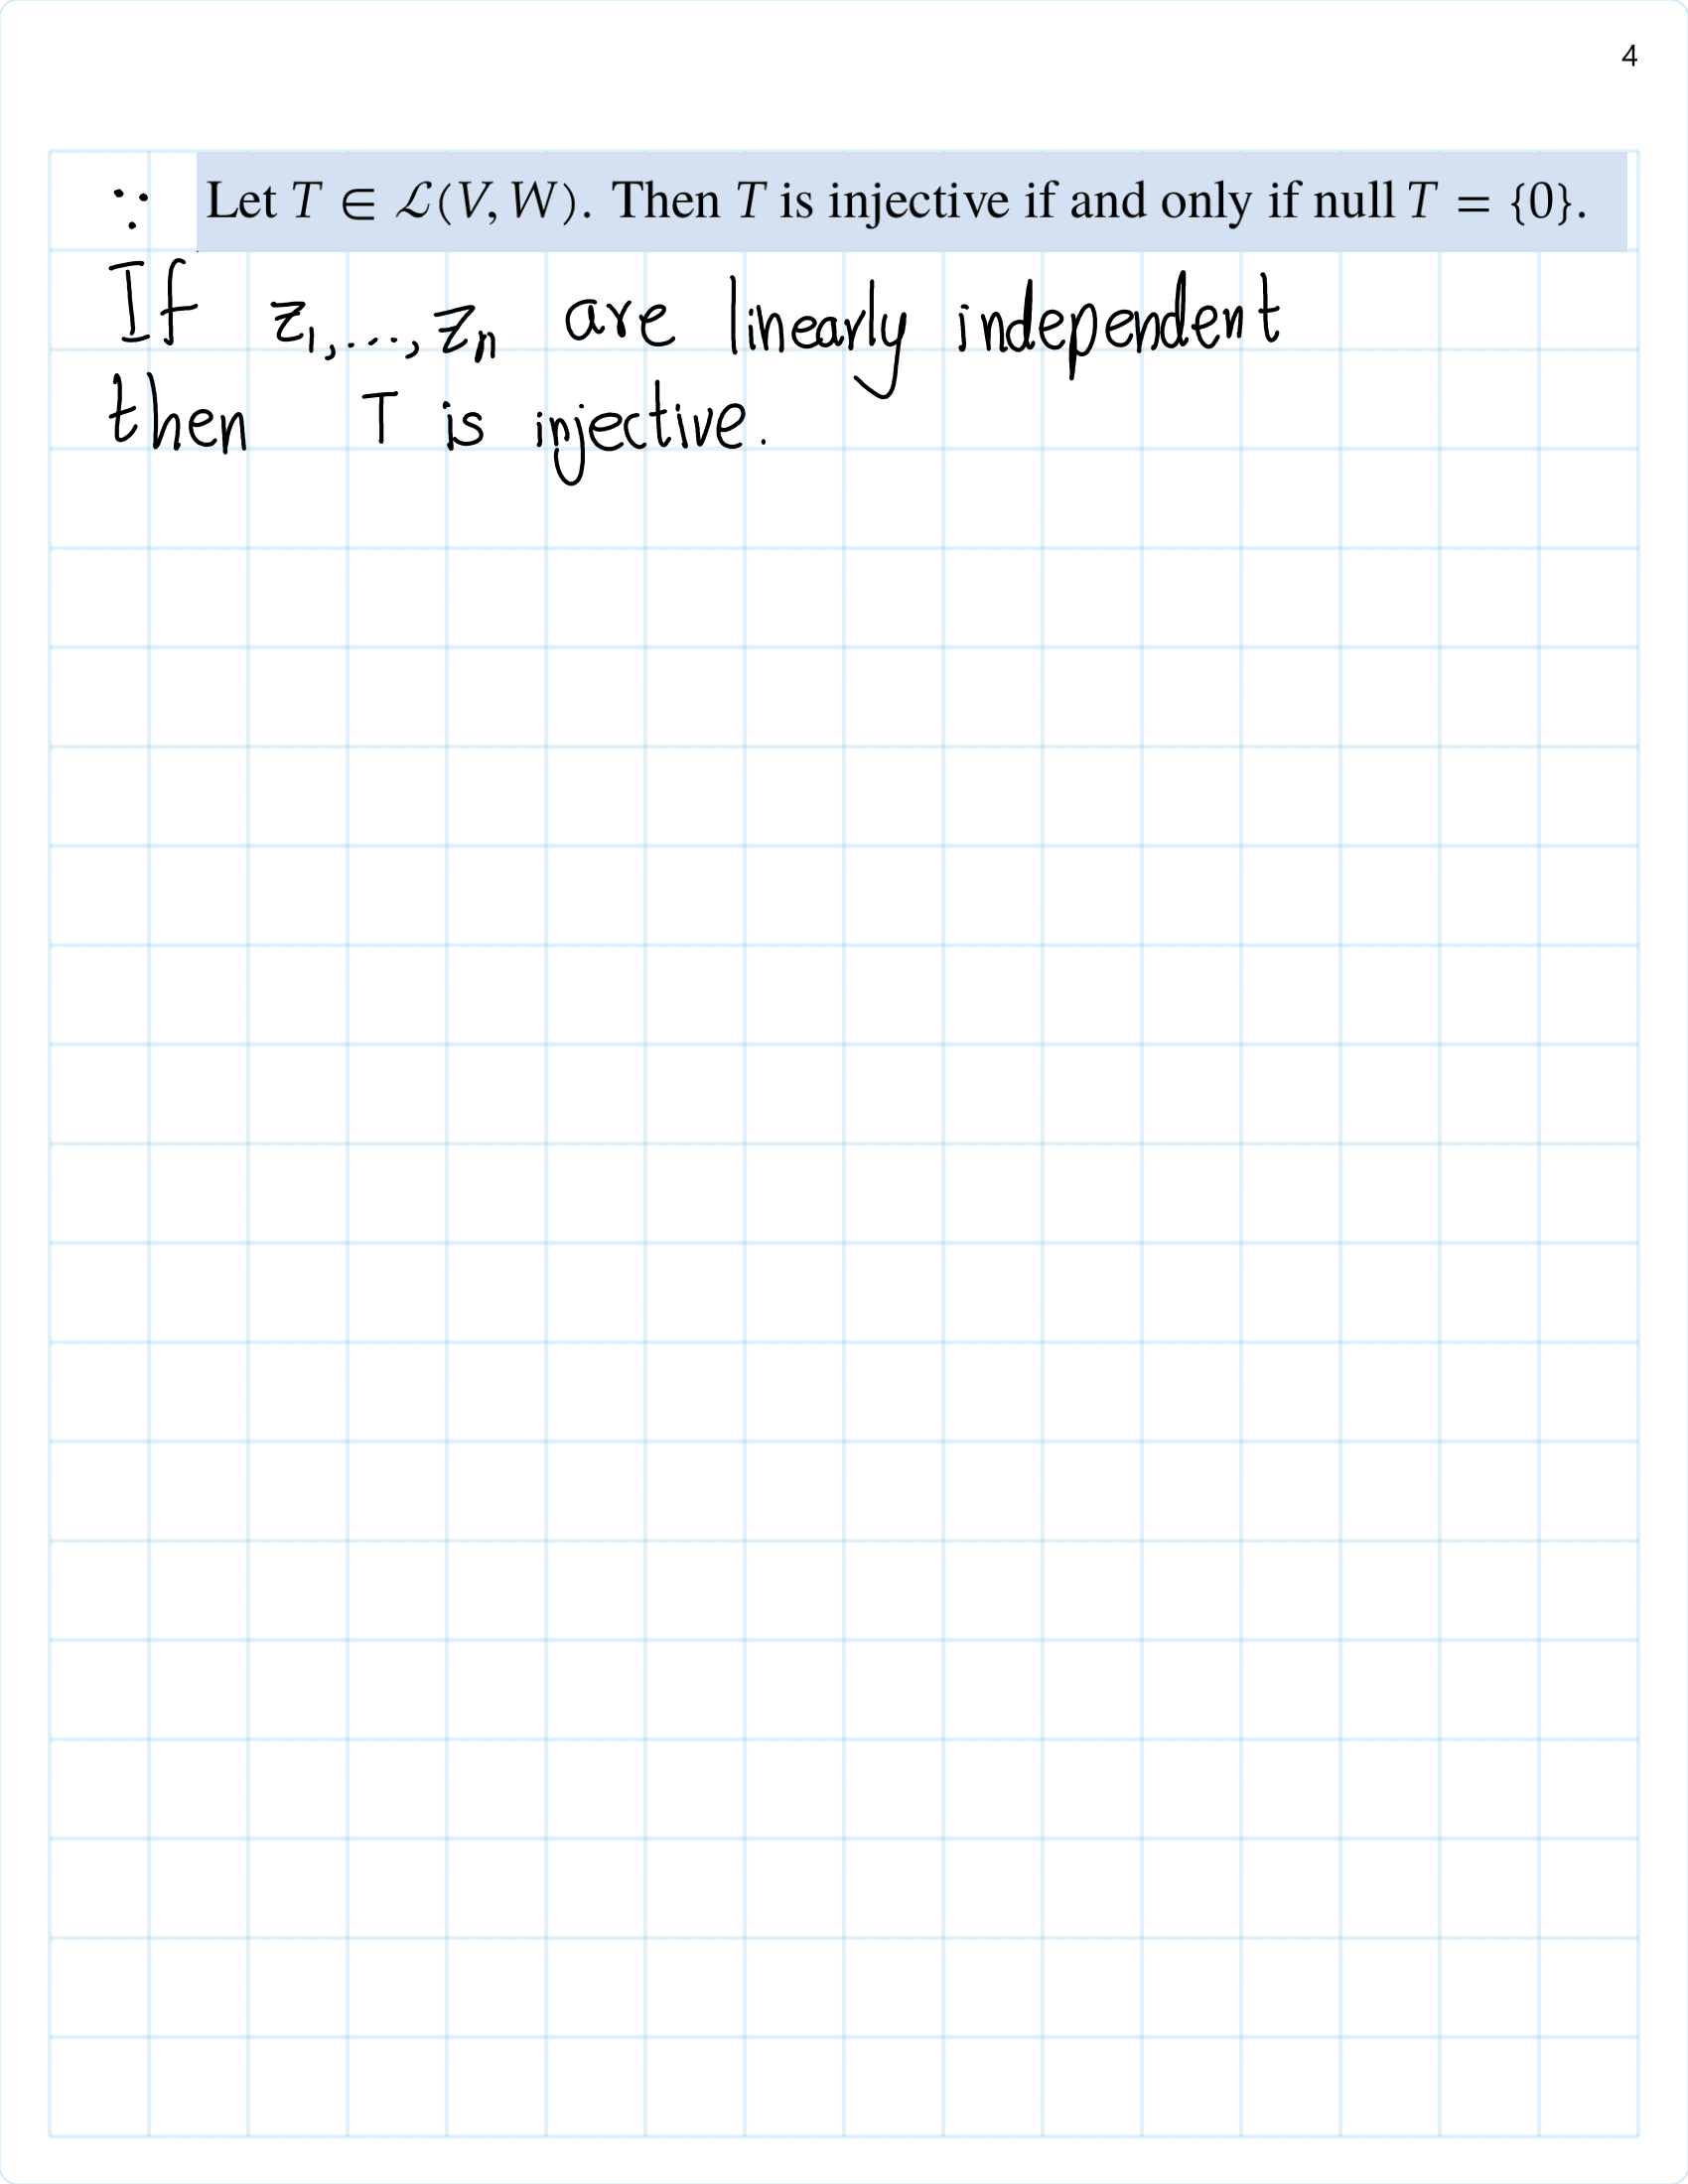 4
∵ Let T ∈ ℒ(V, W). Then T is injective if and only if null T = {0}.
If z₁,...,zₙ are linearly independent
then T is injective.